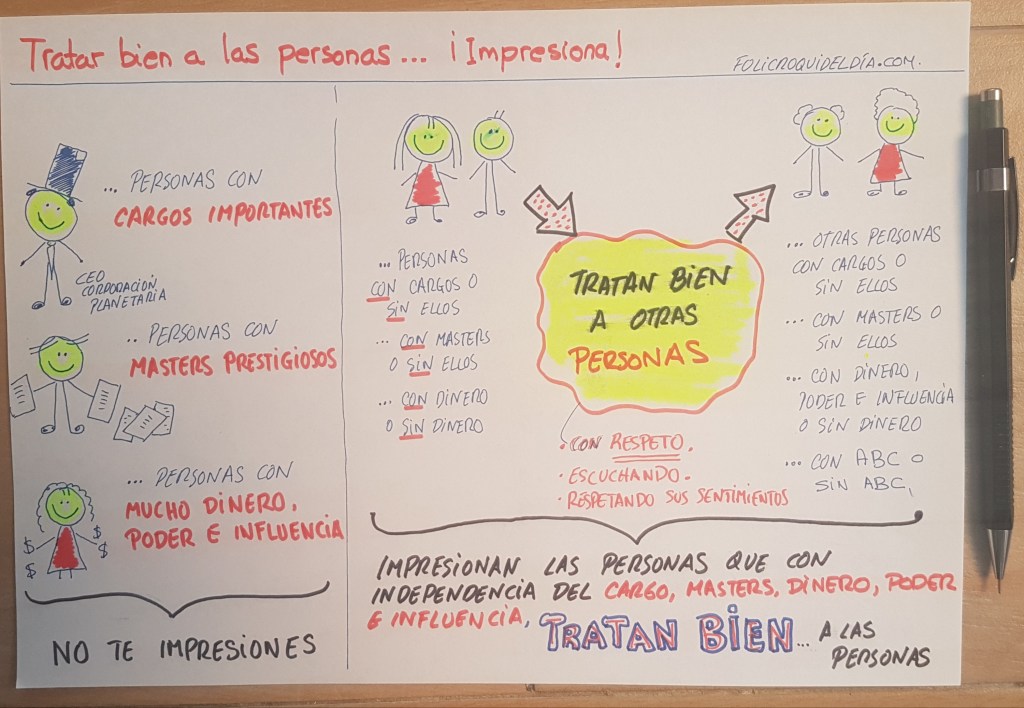 Tratar bien a las personas... ¡Impresiona!
FOLICROQUIDELDÍA.COM.
... PERSONAS CON
CARGOS IMPORTANTES
CEO
CORPORACIÓN
PLANETARIA
.. PERSONAS CON
MASTERS PRESTIGIOSOS
... PERSONAS CON
MUCHO DINERO,
PODER E INFLUENCIA
$ $
$ $
NO TE IMPRESIONES
... PERSONAS
CON CARGOS O
SIN ELLOS
... CON MASTERS
O SIN ELLOS
... CON DINERO
O SIN DINERO
TRATAN BIEN
A OTRAS
PERSONAS
· CON RESPETO.
· ESCUCHANDO.
· RESPETANDO SUS SENTIMIENTOS
... OTRAS PERSONAS
CON CARGOS O
SIN ELLOS
... CON MASTERS O
SIN ELLOS
... CON DINERO,
PODER E INFLUENCIA
O SIN DINERO
... CON ABC O
SIN ABC,
IMPRESIONAN LAS PERSONAS QUE CON
INDEPENDENCIA DEL CARGO, MASTERS, DINERO, PODER
E INFLUENCIA, TRATAN BIEN... A LAS
PERSONAS